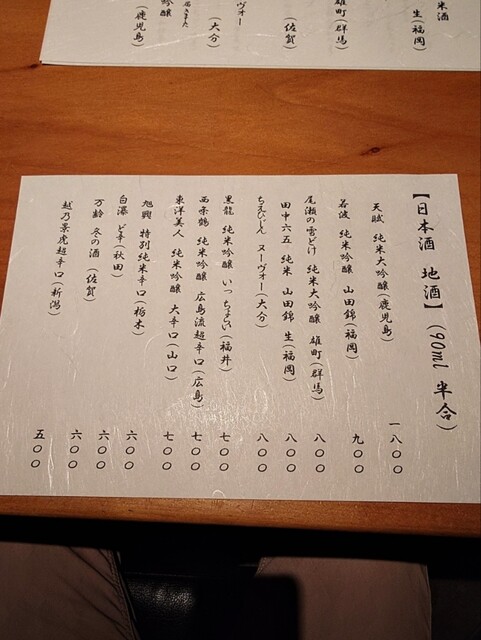 米酒
生（福岡）
雄町（群馬）
（佐賀）
ヴォー
（大分）
吟醸
（鹿児島）
【日本酒 地酒】（90ml 半合）
天賦 純米大吟醸（鹿児島） 一八〇〇
若波 純米吟醸 山田錦（福岡） 九〇〇
尾瀬の雪どけ 純米大吟醸 雄町（群馬） 八〇〇
田中六五 純米 山田錦 生（福岡） 八〇〇
ちえびじん ヌーヴォー（大分） 八〇〇
黒龍 純米吟醸 いっちょらい（福井） 七〇〇
西条鶴 純米吟醸 広島流超辛口（広島） 七〇〇
東洋美人 純米吟醸 大辛口（山口） 七〇〇
旭興 特別純米辛口（栃木） 六〇〇
白瀑 ど辛（秋田） 六〇〇
万齢 冬の酒（佐賀） 六〇〇
越乃景虎超辛口（新潟） 五〇〇